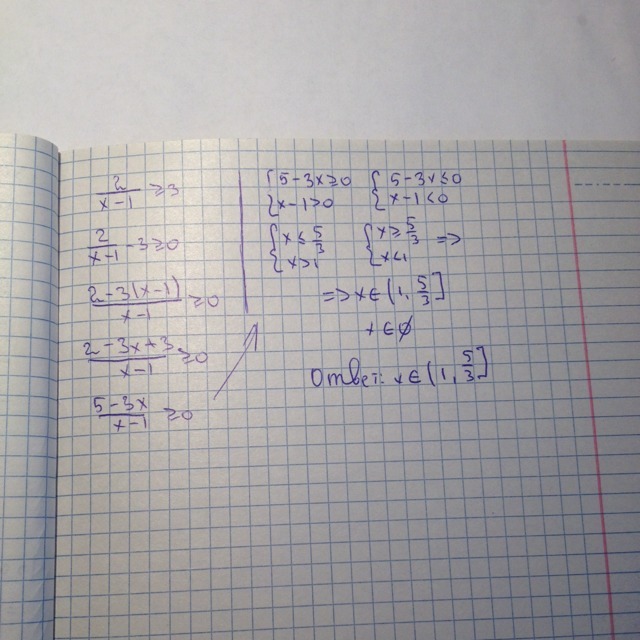 2/(x-1) ≥ 3
2/(x-1) - 3 ≥ 0
(2-3(x-1))/(x-1) ≥ 0
(2-3x+3)/(x-1) ≥ 0
(5-3x)/(x-1) ≥ 0
{ 5-3x ≥ 0 { 5-3x ≤ 0
{ x-1 > 0 { x-1 < 0
{ x ≤ 5/3 { x ≥ 5/3 =>
{ x > 1 { x < 1
=> x ∈ (1, 5/3]
x ∈ ∅
Ответ: x ∈ (1, 5/3]